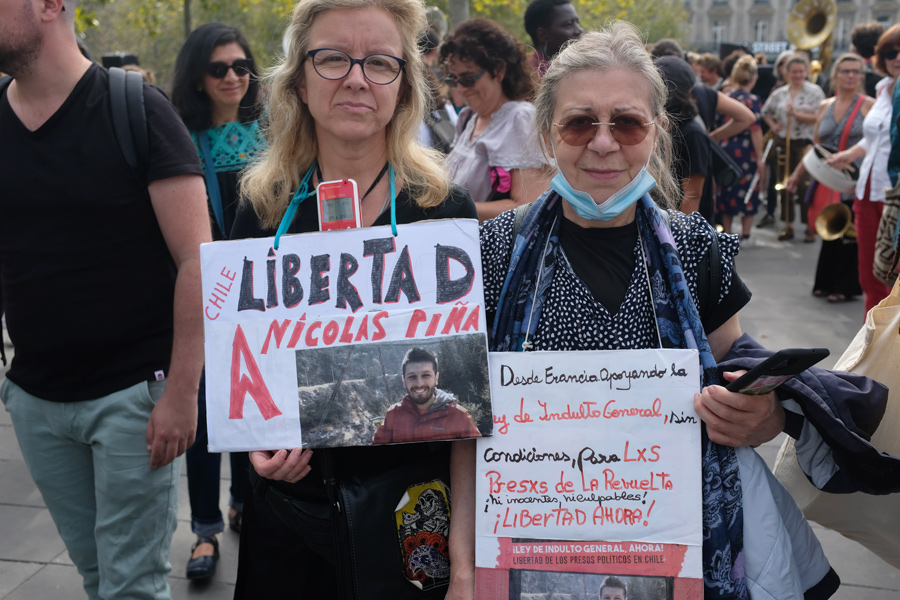 STREET
CHILE
LIBERTAD
A NICOLAS PIÑA
Desde Francia Apoyando la
Ley de Indulto General, sin
condiciones, para LXS
Presxs de La Revuelta
¡ni inocentes, ni culpables!
¡LIBERTAD AHORA!
¡LEY DE INDULTO GENERAL, AHORA!
LIBERTAD DE LOS PRESOS POLÍTICOS EN CHILE